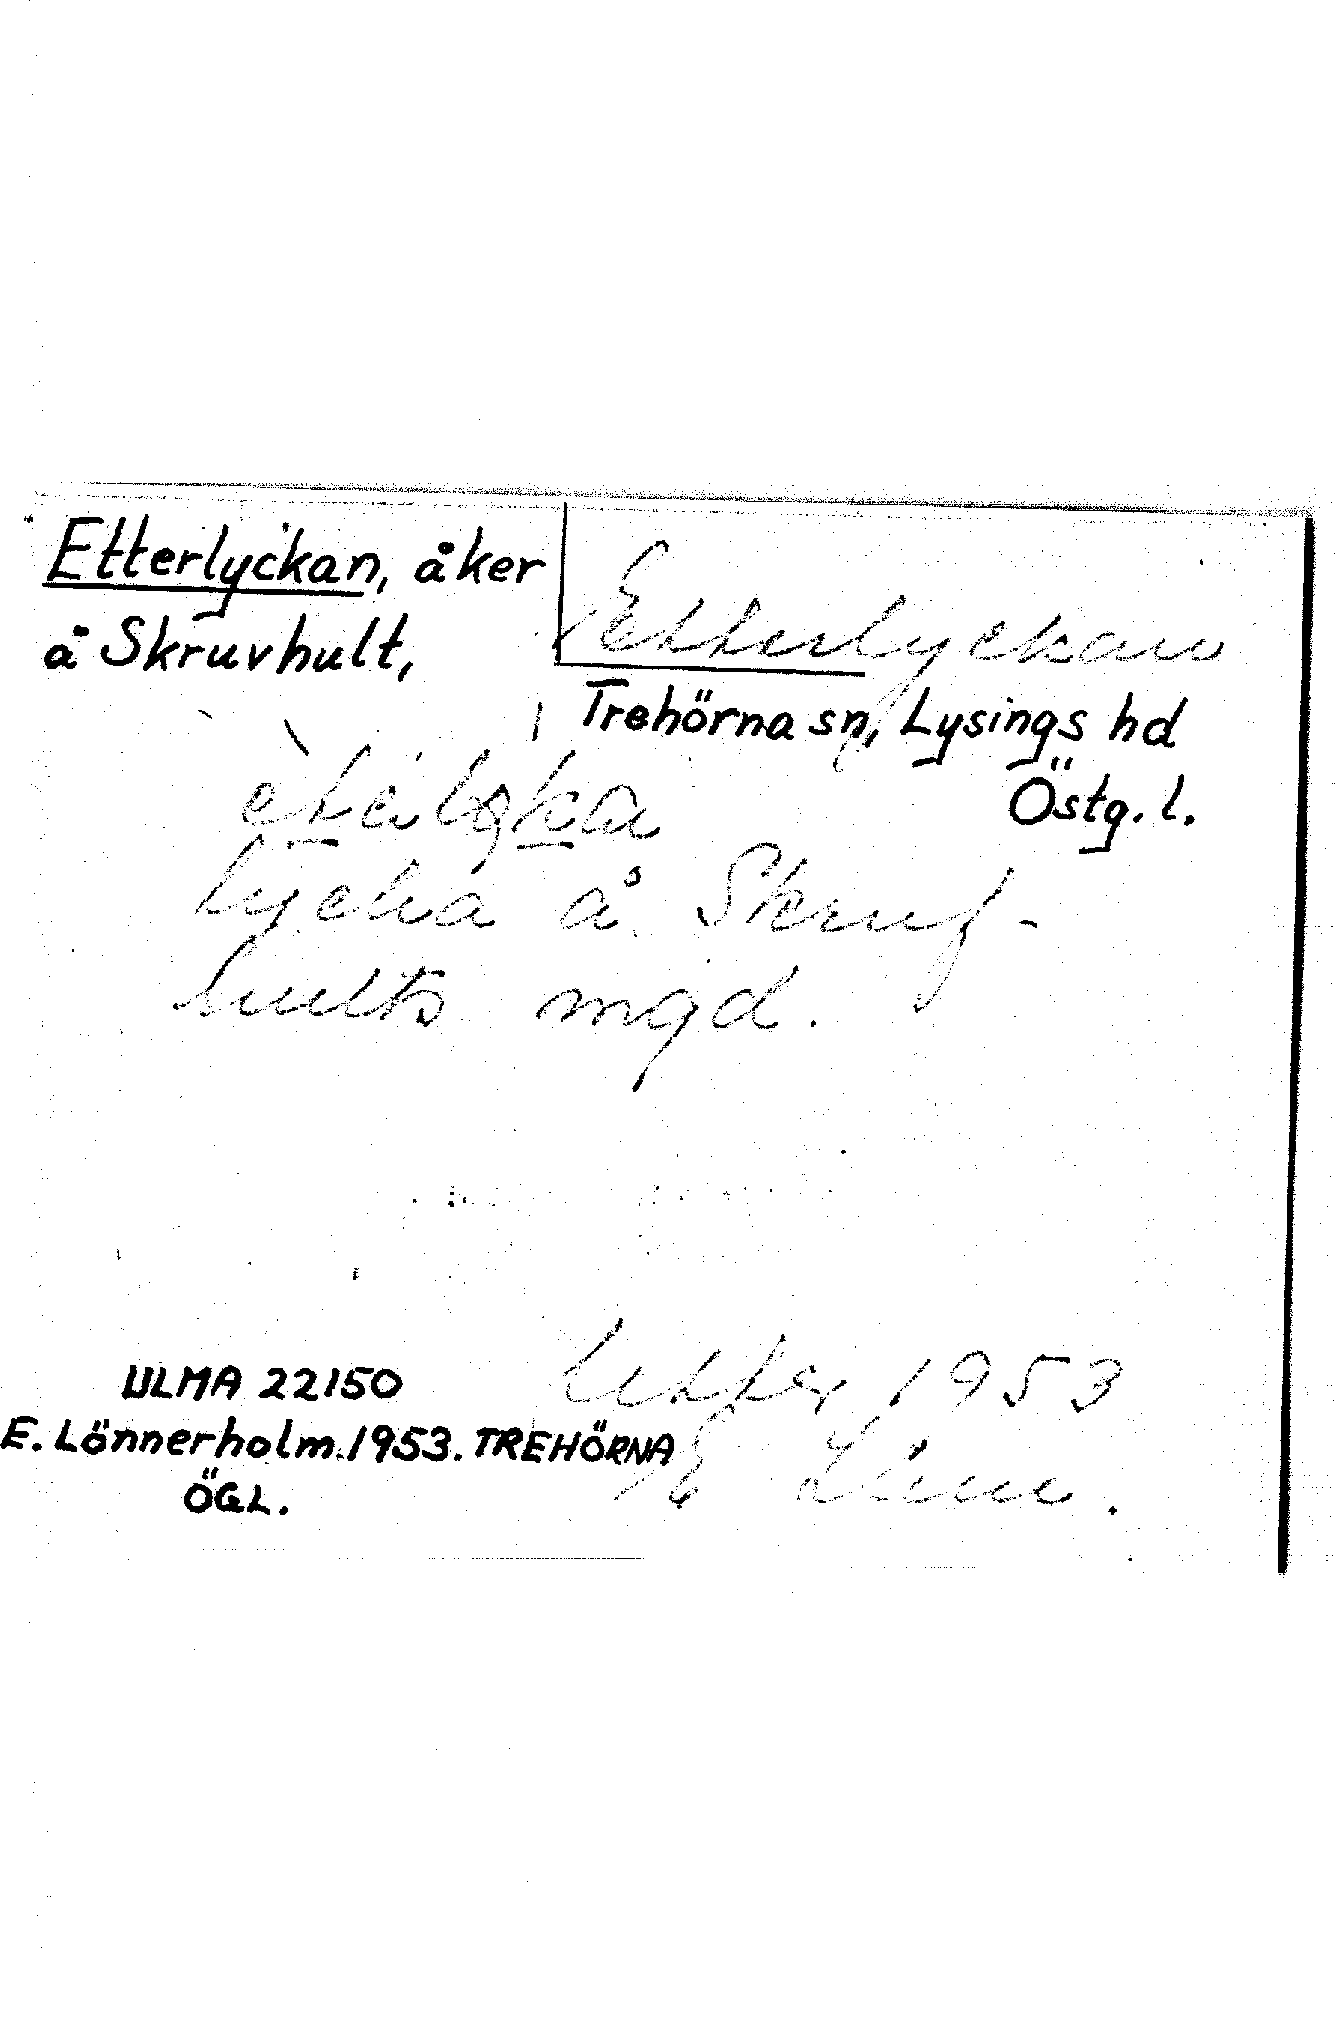 Etterlyckan, åker
å Skruvhult,
Etterlyckan
Trehörna sn, Lysings hd
Östg. l.
lycka å Skruf-
hults mgd.
1953
E
ULMA 22150
E. Lönnerholm. 1953. TREHÖRNA
ÖGL.